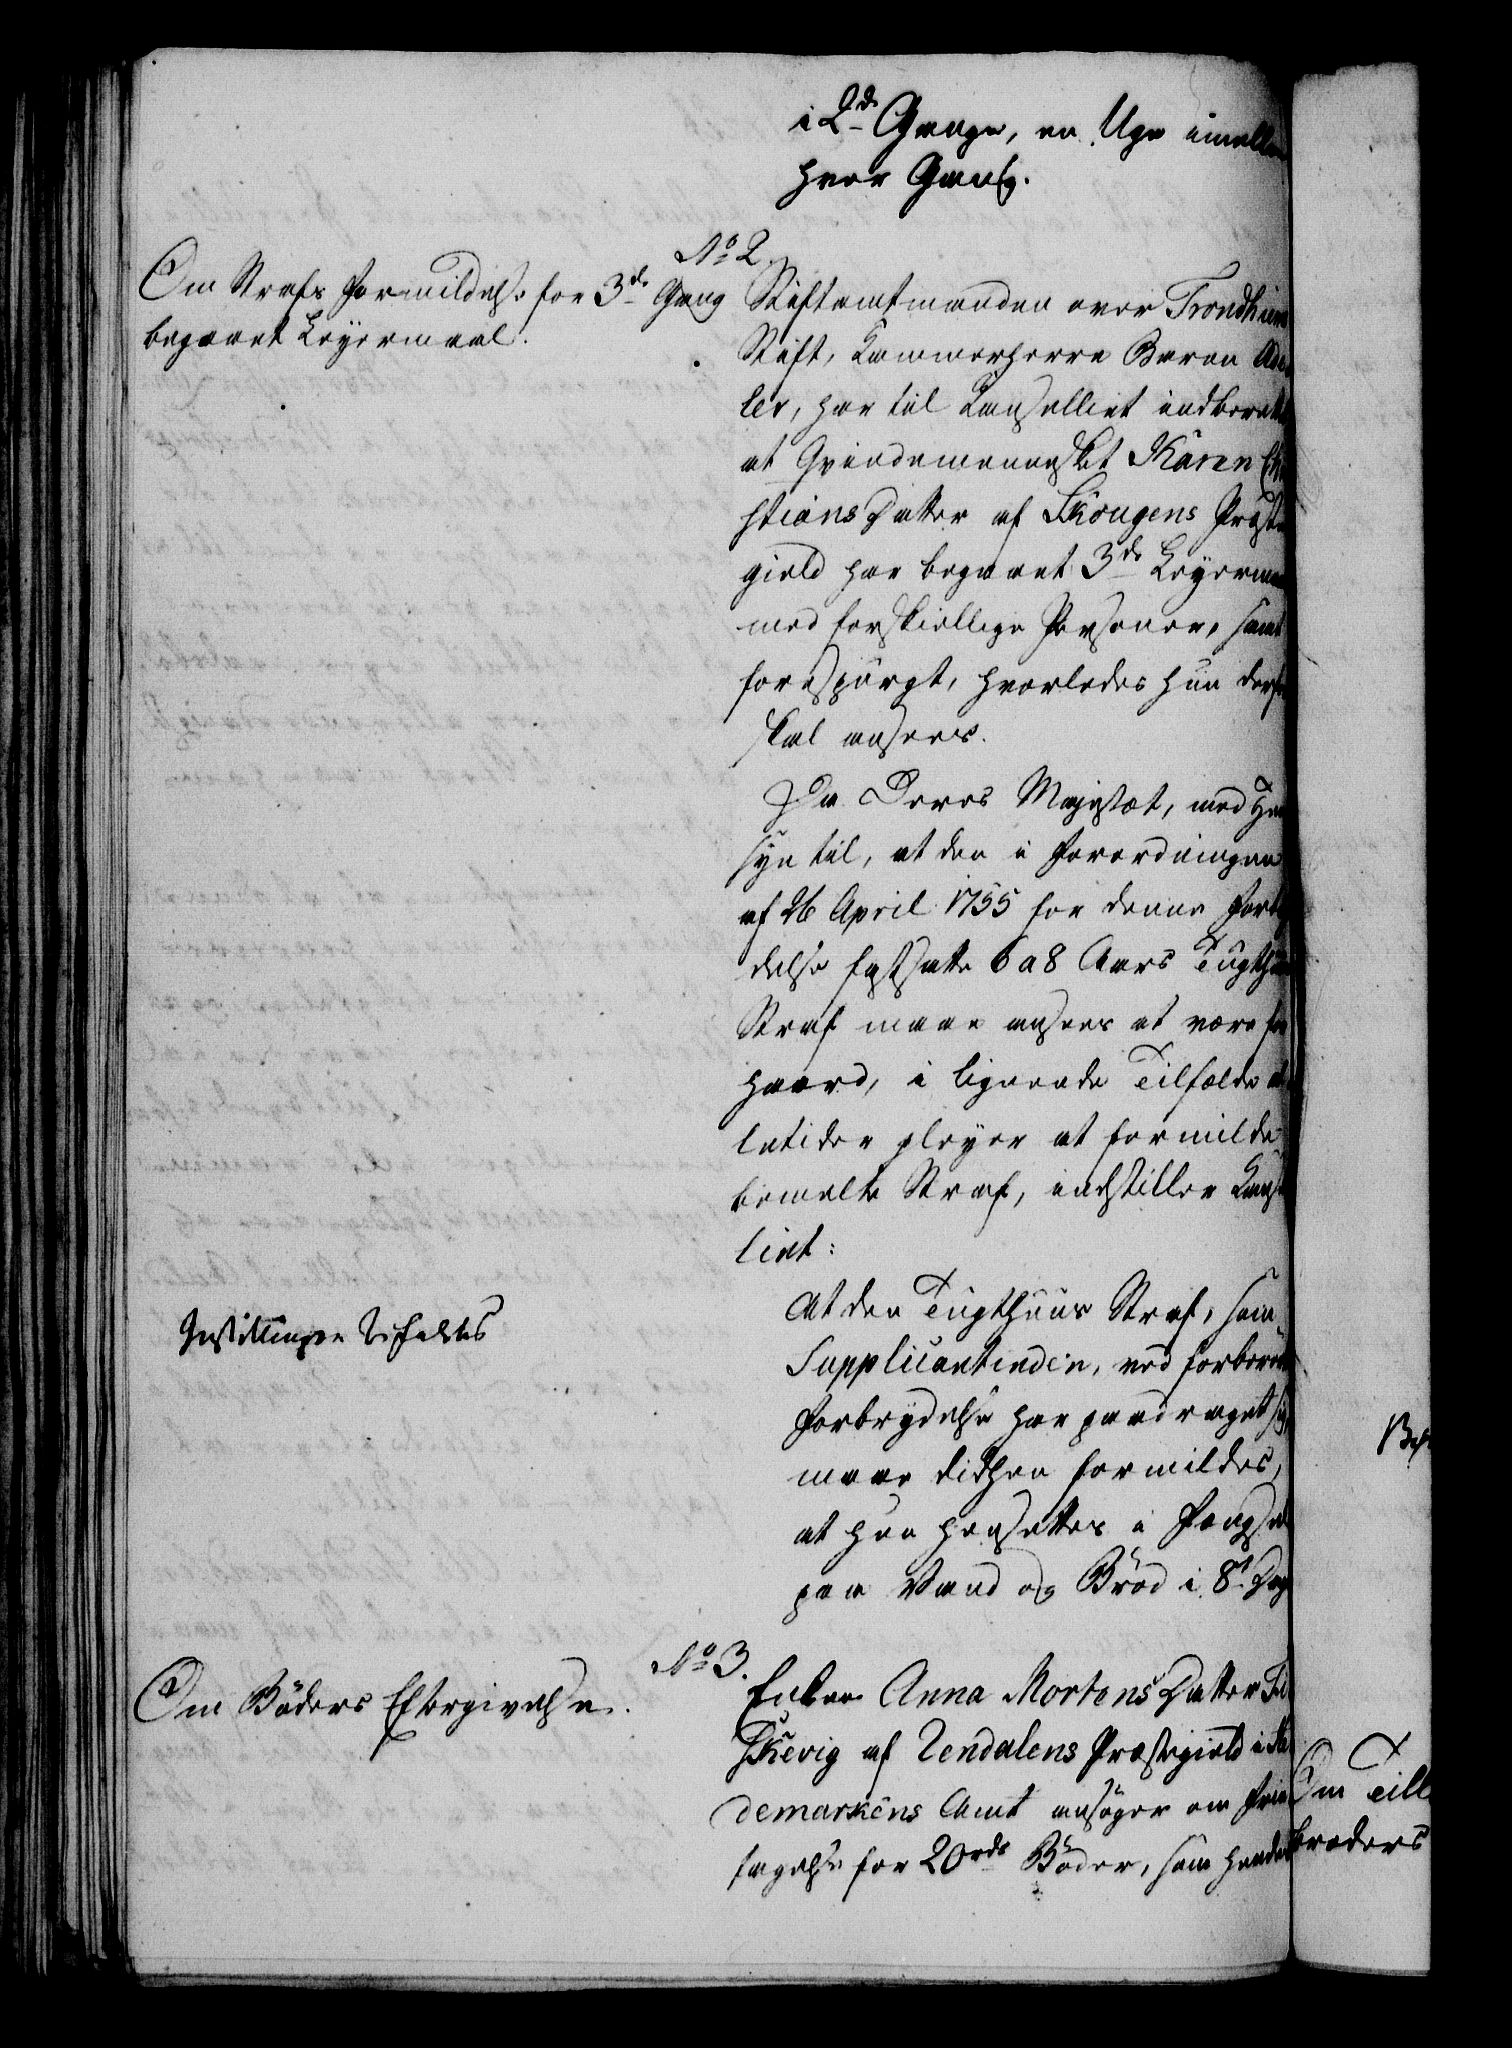 i 2de Gange, en Uge imellem
hver Gang.
No 2.
Om Straffs Formildelse for 3de Gang
begaaet Leyermaal.
Stiftamtmanden over Trondhiems
Stift, Kammerherre Baron Ade
ler, har til Cancelliet indberettet
at Qvindemennesket Karen Chri
stians Datter af Skougens Præste
gield har begaaet 3de Leyermaal
med forskiellige Personer, samt
forespurgt, hvorledes hun derfor
skal ansees.
Da Deres Majestæt, med Hen
syn til, at den i Forordningen
af 26 April 1755 for denne Forbry
delse fastsatte 6 a 8 Aars Tugthuus
Straf maae ansees at være for
haard, i lignende Tilfælde al
letider pleyer at formilde
bemelte Straf, indstiller Cancel
liet:
At den Tugthuus Straf, som
Supplicantinden, ved forberørte
Forbrydelse har paadraget sig,
maae didhen formildes,
at hun hensættes i Fængsel
paa Vand og Brød i 8te Dage
Instillingen bifaldes
No 3.
Om Bøders Eftergivelse.
Enken Anna Mortens Datter
Skevig af Rendalens Præstegield i He
demarkens Amt ansøger om Frie
tagelse for 20 rdr Bøder, som hendes
Om Till
broders